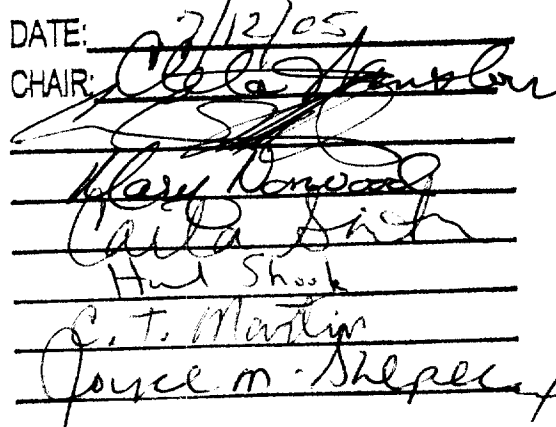 DATE: 7/12/05
CHAIR: Cleta Winslow
Mary Norwood
Carla Smith
H Shook
C. T. Martin
Joyce M. Sheperd